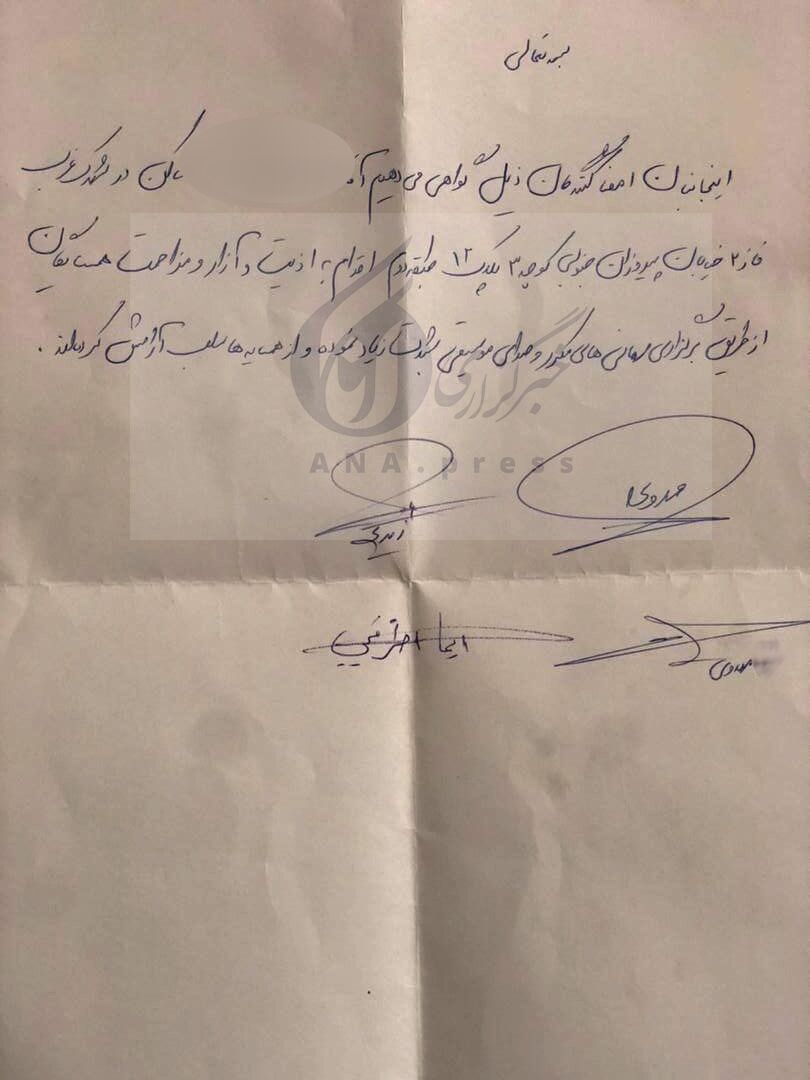 بسمه تعالی
اینجانبان امضا کنندگان ذیل گواهی می دهیم آقا ساکن در شهرک غرب
فاز ۲ خیابان پیروزان جنوبی کوچه ۳ پلاک ۱۲ طبقه دوم اقدام به اذیت و آزار و مزاحمت همسایگان
از طریق برگزاری مهمانی های مکرر و صدای موسیقی بشدت زیاد نموده و از همسایه ها سلب آرامش کرده‌اند.
خبرگزاری آنا
ANA.press
مهدوی